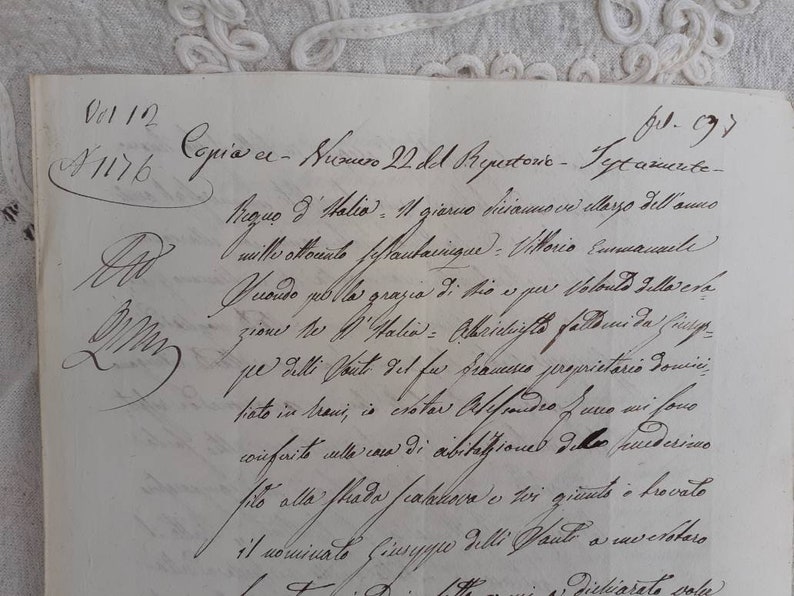 Vol 12
fol. 697
N 1176
Copia e - Numero 22 del Repertorio - Testamento -
Regno d'Italia = Il giorno diciannove Marzo dell'anno
mille ottocento settantacinque = Vittorio Emmanuele
Secondo per la grazia di Dio e per volontà della Na-
zione Re d'Italia = Alla richiesta fattami da Giusep-
pe delli Santi del fu Francesco proprietario domici-
liato in Trani, io Notar Alessandro mi sono
conferito nella casa di abitazione dello medesimo
sito alla strada Scalanova e ivi giunto ò trovato
il nominato Giuseppe delli Santi a me Notaro
dichiarato voler